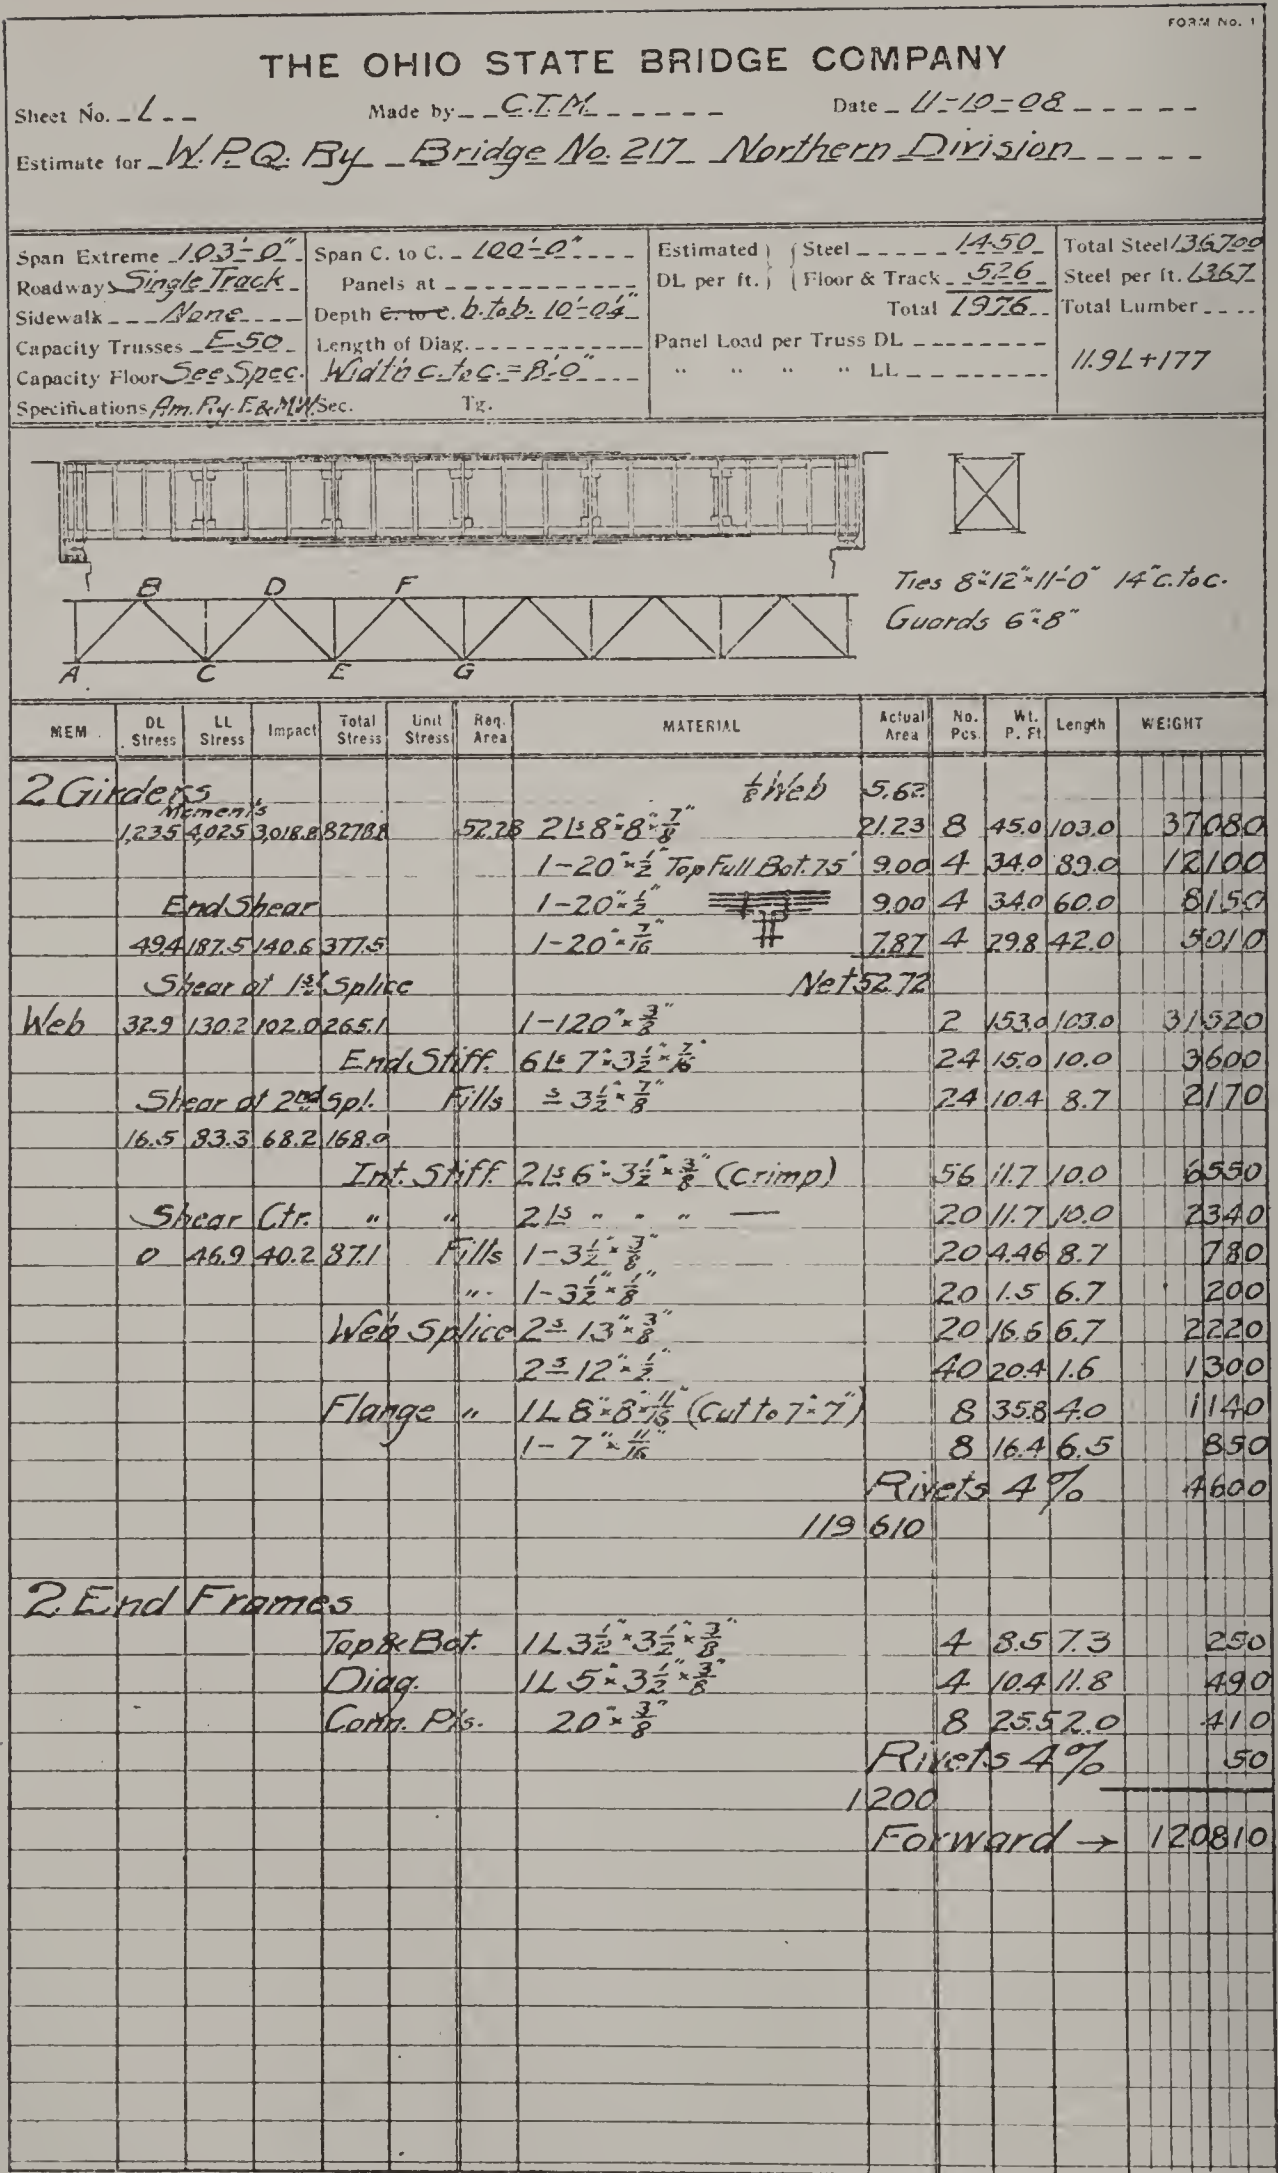 FORM No. 1
THE OHIO STATE BRIDGE COMPANY
Sheet No. 1 Made by C.T.M. Date 11-10-08
Estimate for W.P.Q. Ry Bridge No. 217 Northern Division
Span Extreme 103'-0" Span C. to C. 100'-0" Estimated DL per ft. Steel 1450 Total Steel 136700
Roadway Single Track Panels at Floor & Track 526 Steel per ft. 1367
Sidewalk None Depth C. to C. b. to b. 10'-0¼" Total 1976 Total Lumber
Capacity Trusses E-50 Length of Diag. Panel Load per Truss DL
Capacity Floor See Spec. Width c. to c. = 8'-0" " " " " LL 11.9L+177
Specifications Am. Ry. E. & M.W. Sec. Tg.
Ties 8"×12"×11'-0" 14" c. to c.
Guards 6"×8"
B D F
A C E G
MEM. DL Stress LL Stress Impact Total Stress Unit Stress Req. Area MATERIAL Actual Area No. Pcs. Wt. P. Ft. Length WEIGHT
2 Girders ⅛ Web 5.62
Moments
1,235 4,025 3,018.8 8278.8 52.28 2 Ls 8"×8"×7/8" 21.23 8 45.0 103.0 37080
1-20"×½" Top Full Bot. 75' 9.00 4 34.0 89.0 12100
End Shear 1-20"×½" 9.00 4 34.0 60.0 8150
49.4 187.5 140.6 377.5 1-20"×7/16" 7.87 4 29.8 42.0 5010
Shear at 1st Splice Net 52.72
Web 32.9 130.2 102.0 265.1 1-120"×3/8" 2 153.0 103.0 31520
End Stiff. 6 Ls 7"×3½"×7/16" 24 15.0 10.0 3600
Shear at 2nd Spl. Fills s 3½"×7/8" 24 10.4 8.7 2170
16.5 83.3 68.2 168.0
Int. Stiff. 2 Ls 6"×3½"×3/8" (Crimp) 56 11.7 10.0 6550
Shear Ctr. " " 2 Ls " " " — 20 11.7 10.0 2340
0 46.9 40.2 87.1 Fills 1-3½"×3/8" 20 4.46 8.7 780
" 1-3½"×1/8" 20 1.5 6.7 200
Web Splice 2s 13"×3/8" 20 16.6 6.7 2220
2s 12"×½" 40 20.4 1.6 1300
Flange " 1L 8"×8"×11/16" (Cut to 7"×7") 8 35.8 4.0 1140
1-7"×11/16" 8 16.4 6.5 850
Rivets 4% 4600
119610
2 End Frames
Top & Bot. 1L 3½"×3½"×3/8" 4 8.5 7.3 250
Diag. 1L 5"×3½"×3/8" 4 10.4 11.8 490
Conn. Pls. 20"×3/8" 8 25.5 2.0 410
Rivets 4% 50
1200
Forward → 120810